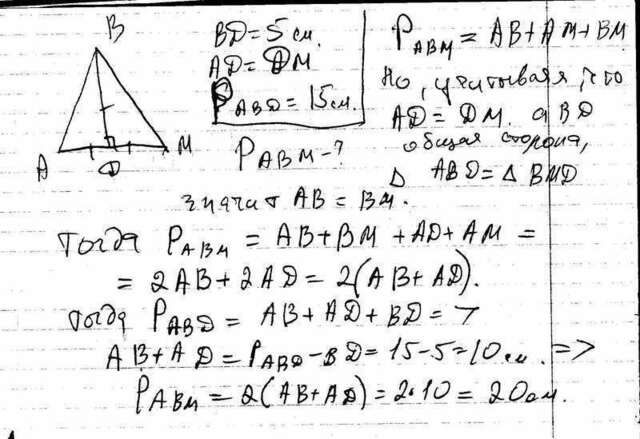 B
A
D
M
BD = 5 см.
AD = DM
P ABD = 15 см.
P ABM - ?
P ABM = AB + AM + BM
Но, учитывая, что
AD = DM. а BD
общая сторона,
△ ABD = △ BMD
значит AB = BM.
Тогда P ABM = AB + BM + AD + AM =
= 2AB + 2AD = 2(AB + AD).
тогда P ABD = AB + AD + BD = 7
AB + AD = P ABD - BD = 15 - 5 = 10 см. =>
P ABM = 2(AB + AD) = 2·10 = 20 см.